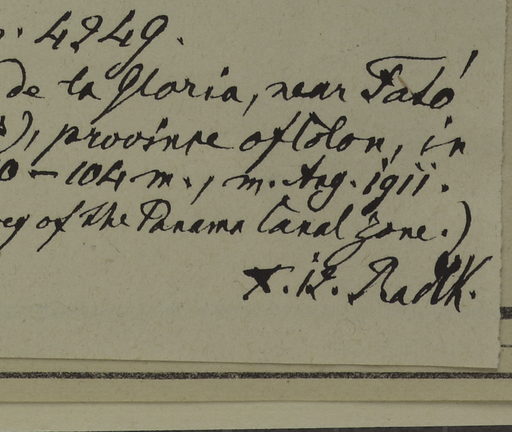 . 4249.
de la Gloria, near Fató
), province of Colon, in
0–104 m., m. Aug. 1911.
ey of the Panama Canal Zone.)
Radlk.